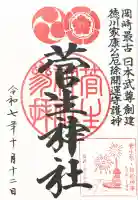 岡崎最古 日本武尊創建
徳川家康公厄除開運守護神
菅生神社
令和七年十月十二日